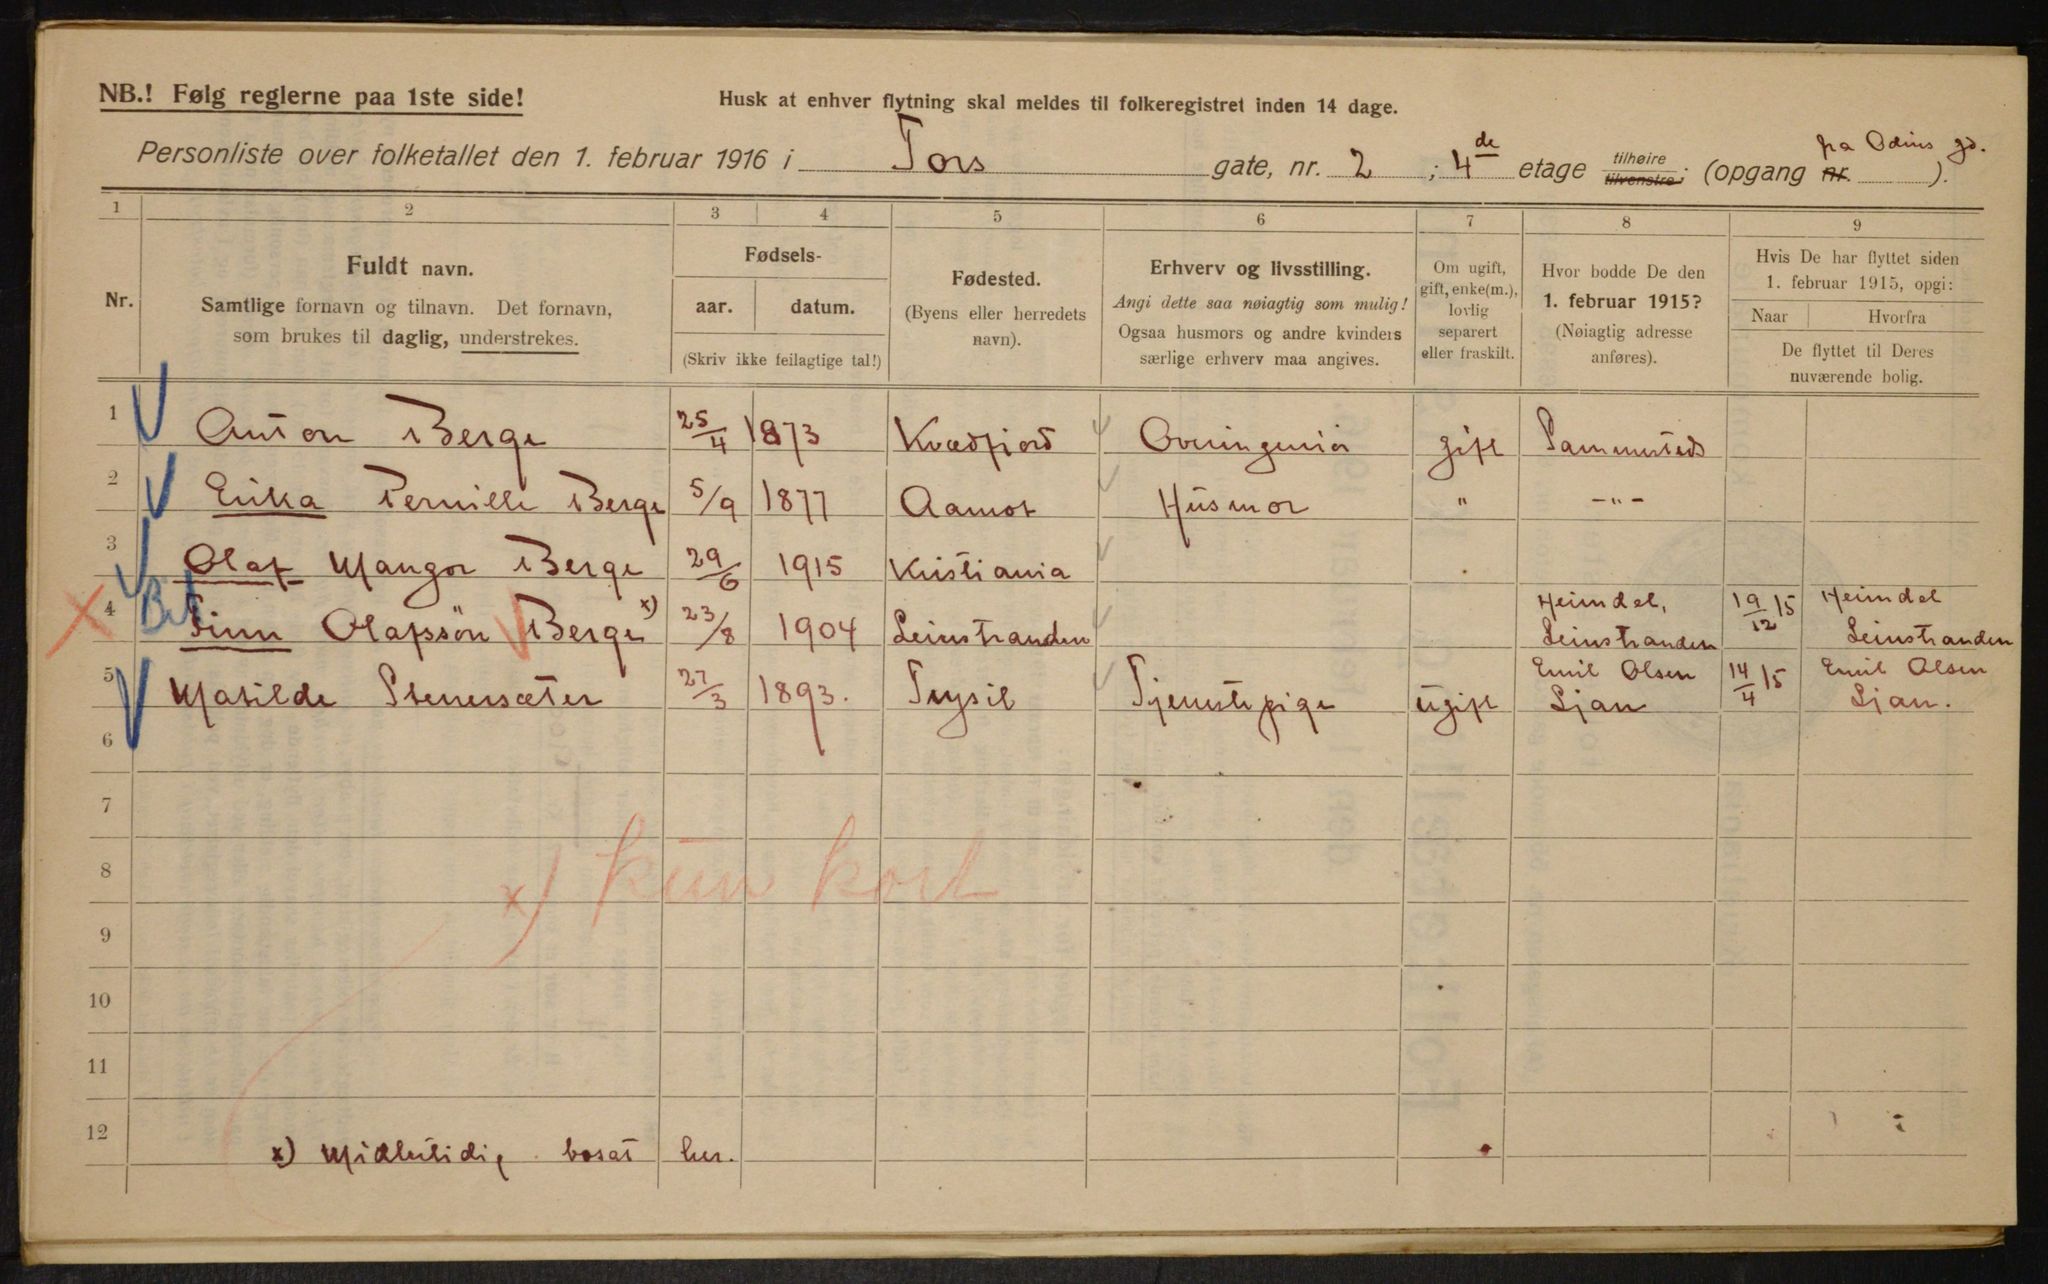 NB.! Følg reglerne paa 1ste side!
Husk at enhver flytning skal meldes til folkeregistret inden 14 dage.
Personliste over folketallet den 1. februar 1916 i Tors gate, nr. 2 ; 4de etage tilhøire tilvenstre; (opgang nr. paa Odins gd. ).
1 2 3 4 5 6 7 8 9
Nr.
Fuldt navn.
Samtlige fornavn og tilnavn. Det fornavn,
som brukes til daglig, understrekes.
Fødsels-
aar. datum.
(Skriv ikke feilagtige tal!)
Fødested.
(Byens eller herredets
navn).
Erhverv og livsstilling.
Angi dette saa nøiagtig som mulig!
Ogsaa husmors og andre kvinders
særlige erhverv maa angives.
Om ugift,
gift, enke(m.),
lovlig
separert
eller fraskilt.
Hvor bodde De den
1. februar 1915?
(Nøiagtig adresse
anføres).
Hvis De har flyttet siden
1. februar 1915, opgi:
Naar Hvorfra
De flyttet til Deres
nuværende bolig.
1 Anton Berge 25/4 1873 Kvædfjord Overingeniør gift Sammesteds
2 Erika Pernille Berge 5/9 1877 Aamot Husmor " -"-
3 Olaf Mangor Berge 29/6 1915 Kristiania
4 Finn Olafssön Berge x) 23/8 1904 Leinstranden Heimdal, Leinstranden 19/12 15 Heimdal Leinstranden
5 Matilde Stenersæter 27/3 1893. Trysil Tjenestepige ugift Emil Olsen Ljan 14/4 15 Emil Olsen Ljan.
6
7
8 x) kun kort
9
10
11
12 x) Midlertidig bosat her.